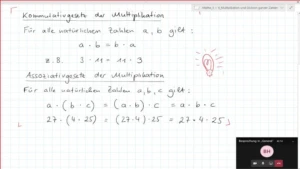 Kommutativgesetz der Multiplikation
Für alle natürlichen Zahlen a, b gilt:
a · b = b · a
z.B. 3 · 11 = 11 · 3
Assoziativgesetz der Multiplikation
Für alle natürlichen Zahlen a, b, c gilt:
a · (b · c) = (a · b) · c = a · b · c
27 · (4 · 25) = (27 · 4) · 25 = 27 · 4 · 25
BH